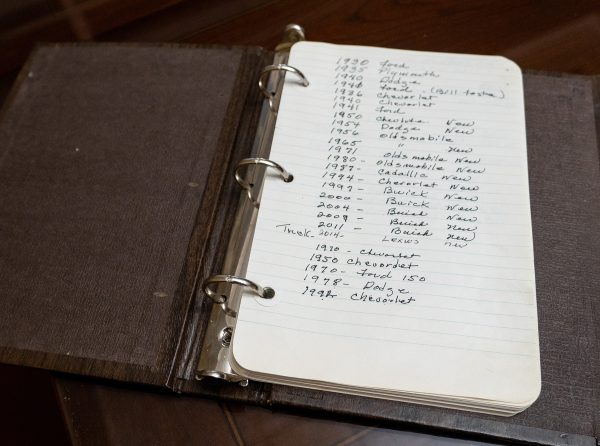 1930 Ford
1935 Plymouth
1940 Dodge
1940 Ford (Bill Foster)
1936 Chevorlet
1940 Chevorlet
1941 Ford
1950 Chevorlet New
1954 Dodge New
1956 Oldsmobile
1965 " New
1971
1980 - Oldsmobile New
1987 - Oldsmobile New
1994 - Cadallic New
1997 - Chevorlet New
2000 - Buick New
2004 - Buick New
2008 - Buick New
2011 - Buick New
2014 - Lexus
Truck -
1930 - Chevorlet
1950 Chevorolet
1970 - Ford 150
1978 - Dodge
1992 Chevorlet